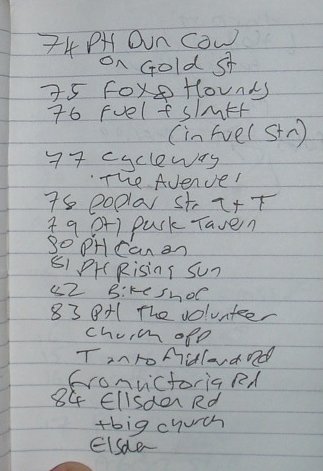 74 PH Dun Cow
on Gold St
75 Fox & Hounds
76 Fuel + s/mkt
(in fuel stn)
77 cycleway
'The Avenue'
78 poplar str a + T
79 PH park Tavern
80 PH Canon
81 PH Rising Sun
82 Bikeshop
83 PH The volunteer
church opp
T onto Midland Rd
from victoria Rd
84 Ellsden Rd
+ big church
Elsden